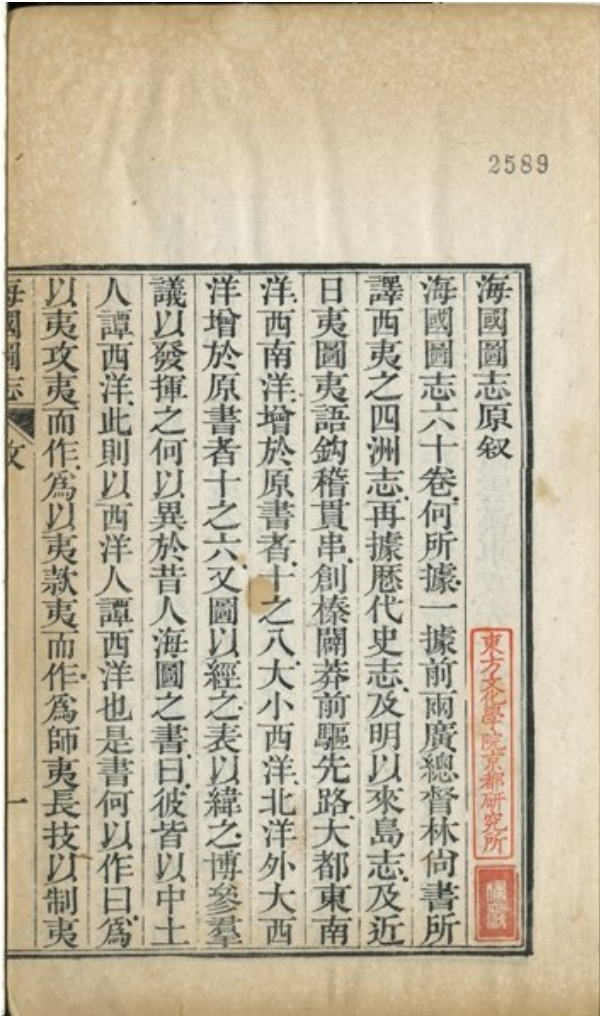 2589
海國圖志原叙
海國圖志六十卷何所據一據前兩廣總督林尙書所
譯西夷之四洲志再據歷代史志及明以來島志及近
日夷圖夷語鈎稽貫串創榛闢莽前驅先路大都東南
洋西南洋增於原書者十之八大小西洋北洋外大西
洋增於原書者十之六又圖以經之表以緯之博參羣
議以發揮之何以異於昔人海圖之書曰彼皆以中土
人譚西洋此則以西洋人譚西洋也是書何以作曰爲
以夷攻夷而作爲以夷款夷而作爲師夷長技以制夷
海國圖志
一
東方文化學院京都研究所